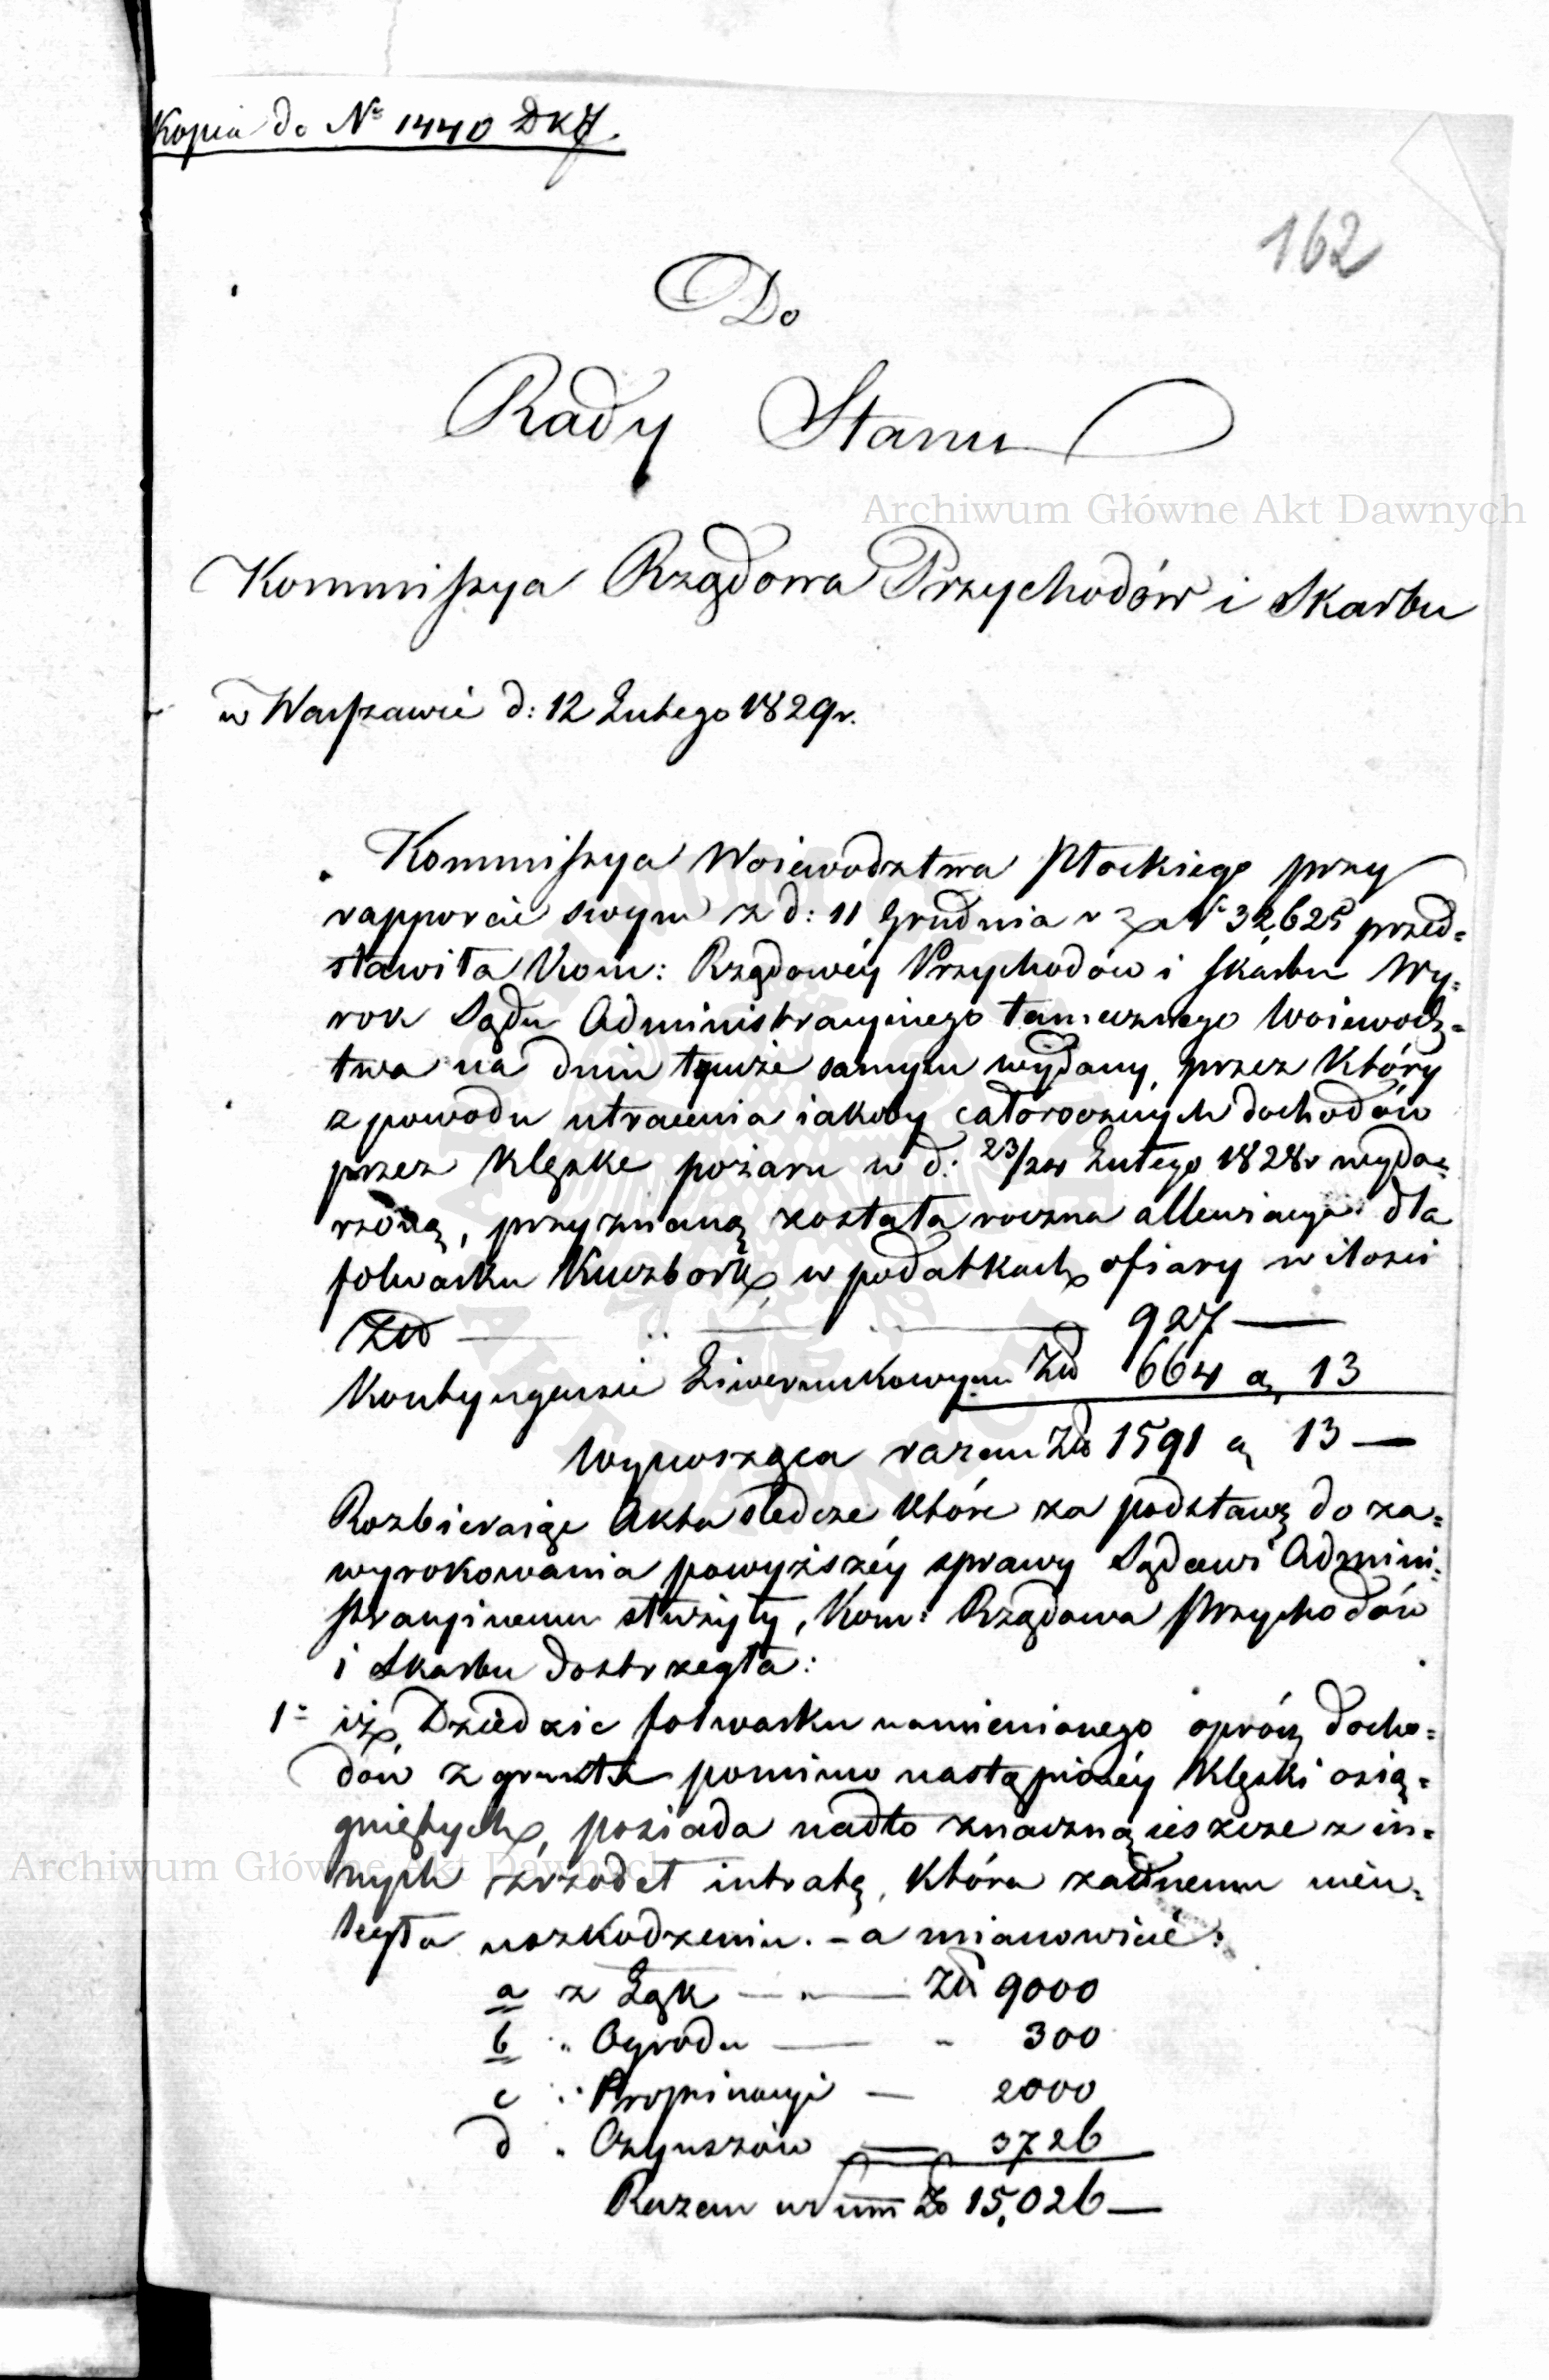 Kopia do Nº 1440 DKJ.
162
Do
Rady Stanu
Archiwum Główne Akt Dawnych
Kommissya Rządowa Przychodów i Skarbu
w Warszawie d: 12 Lutego 1829r.
Kommissya Woiewodztwa Płockiego przy
rapporcie swym z d: 11 Grudnia r z za Nº 32,625 przed=
stawiła Kom: Rządowéy Przychodów i Skarbu Wy=
rok Sądu Administracyinego tamecznego Woiewodz=
twa na dniu tymże samym wydany, przez który
z powodu utracenia iakoby całorocznych dochodów
przez klęskę pożaru w d: 23/24 Lutego 1828r wyda=
rzoną, przyznaną została roczna allewiacya dla
folwarku Kuczbork, w podatkach ofiary w ilości
Zł — 927 —
Kontyngensie Liwerunkowym Zł 664 g 13
Wynosząca razem Zł 1591 g 13 —
Rozbieraiąc Akta śledcze które za podstawę do za=
wyrokowania powyższéy sprawy Sądowi Admini=
stracyinemu służyły, Kom: Rządowa Przychodów
i Skarbu dostrzegła:
1º iż Dziedzic folwarku namienionego oprócz docho=
dów z gruntu pomimo nastąpionéy klęski osią=
gniętych, posiada nadto znaczną ieszcze z in=
nych źrzódeł intratę, która żadnemu nieu=
legła uszkodzeniu. – a mianowicie:
Archiwum Główne Akt Dawnych
a z Łąk — Zł 9000
b " Ogrodu — " 300
c " Propinacyi — 2000
d " Czynszów — 3726
Razem w Summ Zł 15,026 —